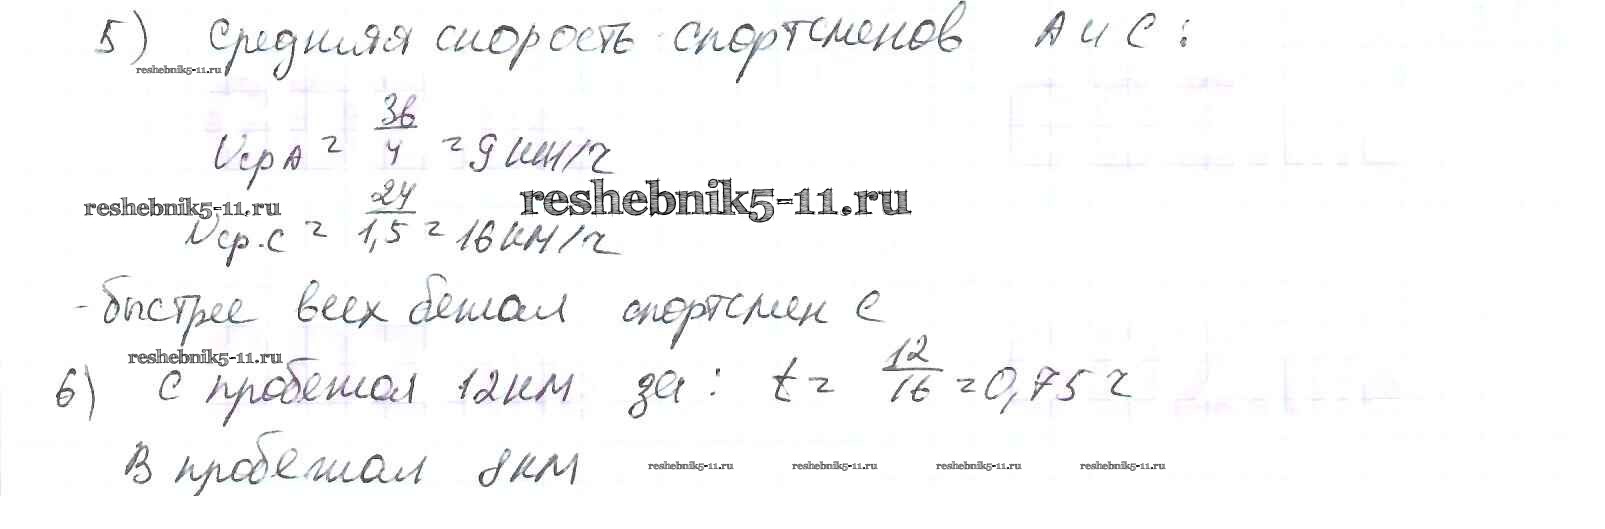 5) Средняя скорость спортсменов А и С:
reshebnik5-11.ru
Vср А = 36/4 = 9 км/ч
reshebnik5-11.ru reshebnik5-11.ru
Vср.С = 24/1,5 = 16 км/ч
- быстрее всех бежал спортсмен С
reshebnik5-11.ru
6) С пробежал 12 км за: t = 12/16 = 0,75 ч
В пробежал 8 км
reshebnik5-11.ru reshebnik5-11.ru reshebnik5-11.ru reshebnik5-11.ru